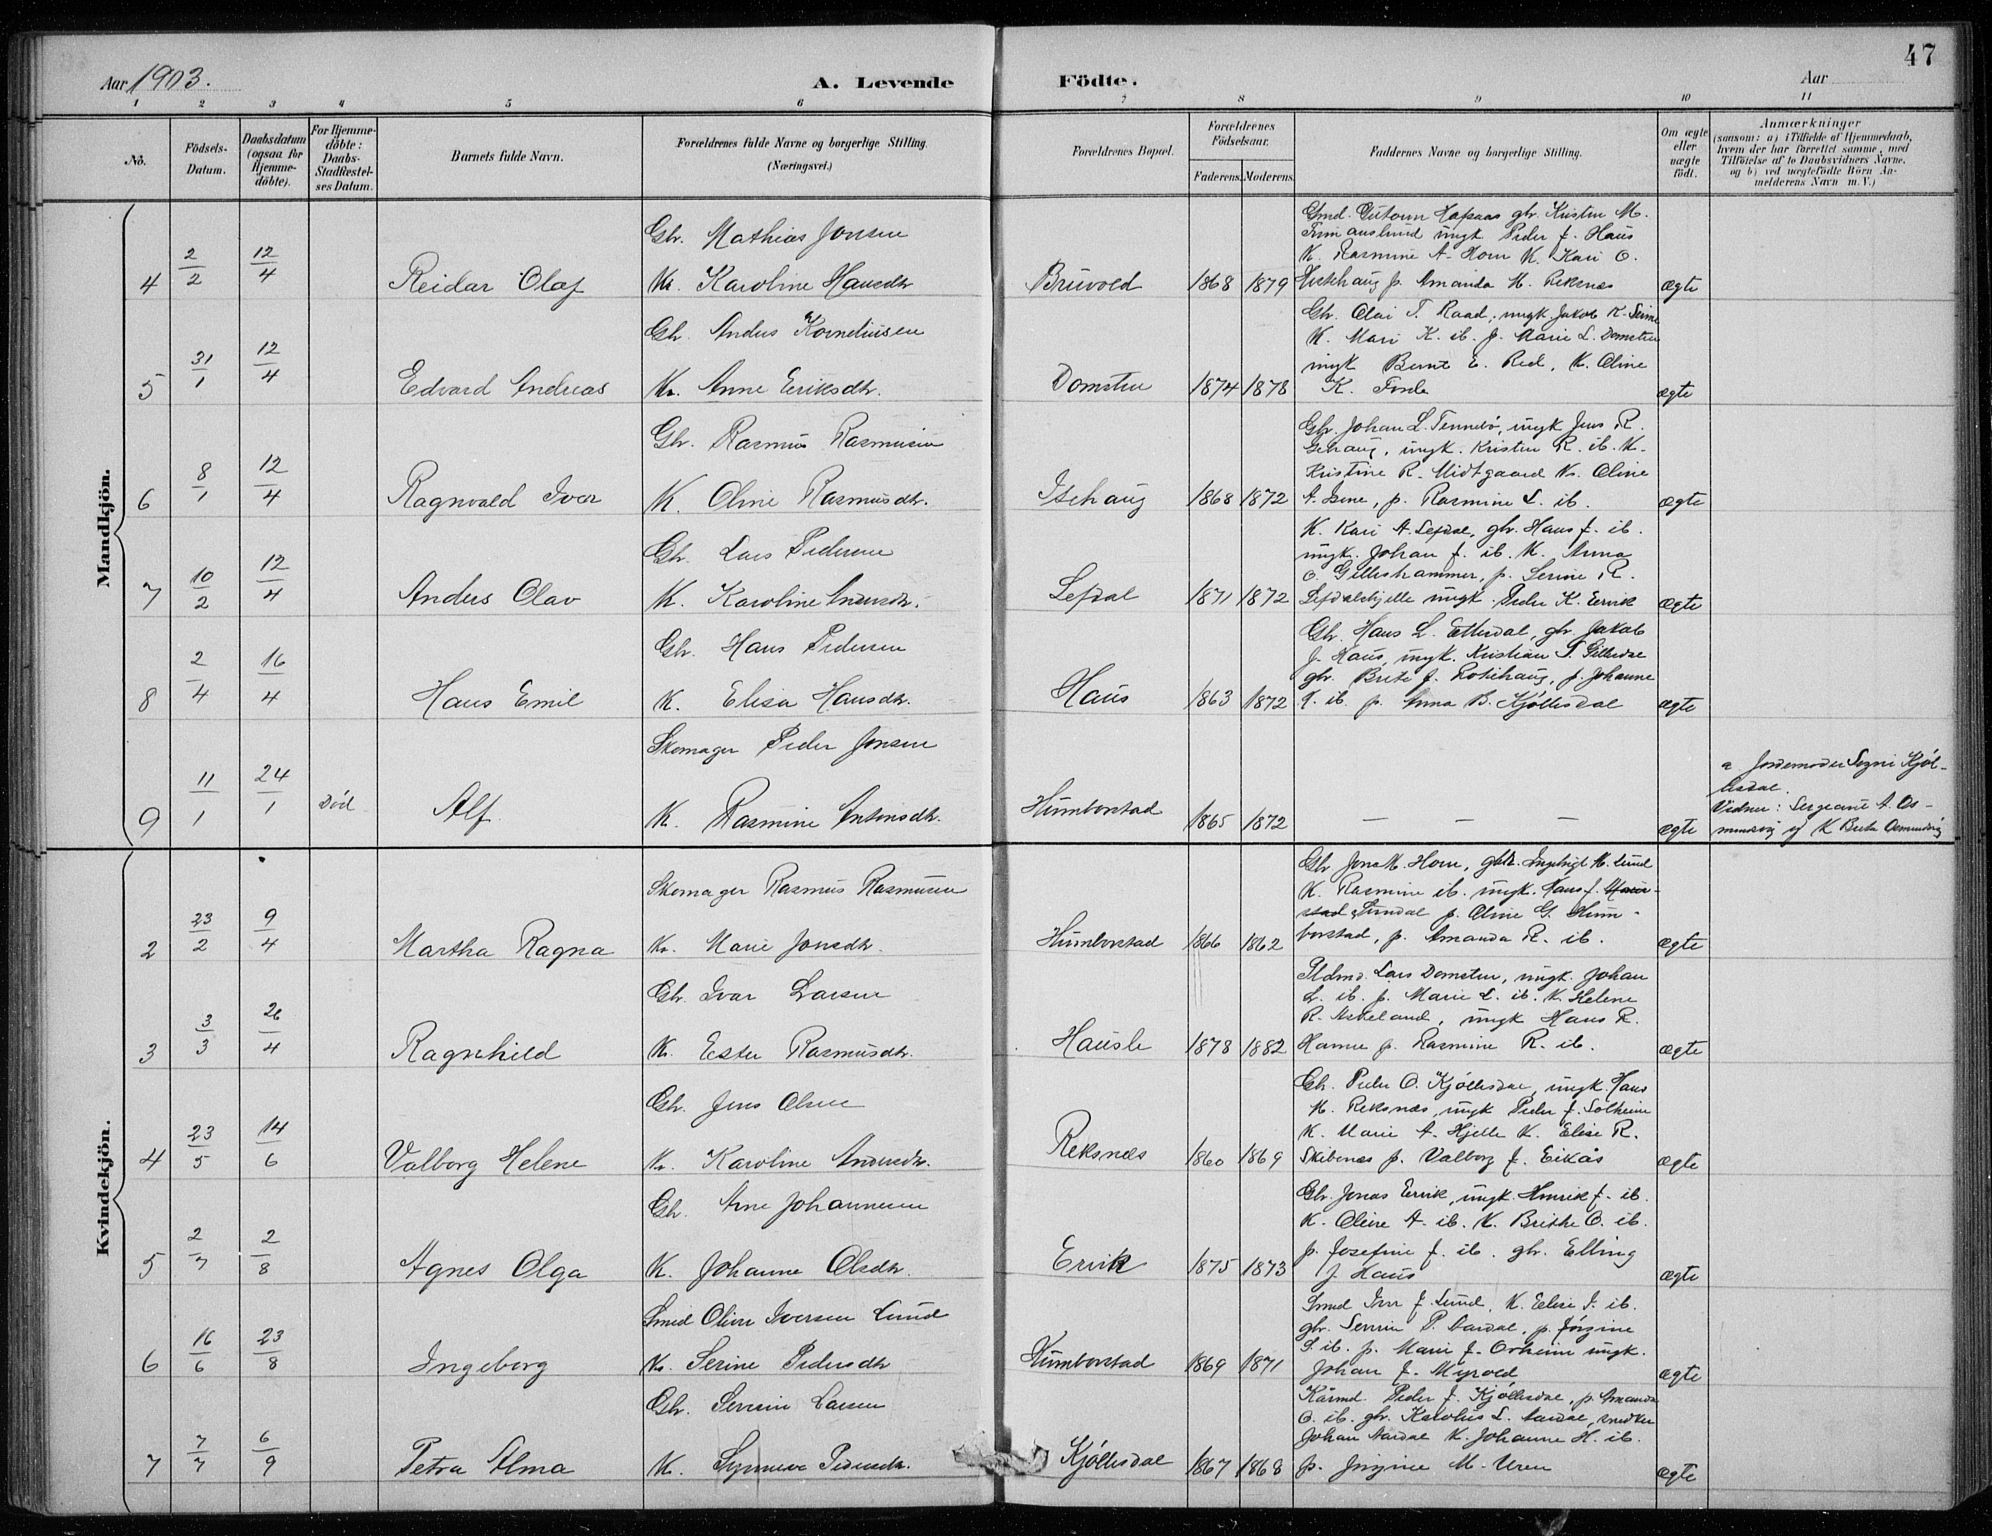 47
Aar 1903.
A. Levende Födte.
Aar
1 2 3 4 5 6 7 8 9 10 11
No.
Födsels-Datum.
Daabsdatum (ogsaa for Hjemme-döbte).
For Hjemme-döbte: Daabs-Stadfæstel-ses Datum.
Barnets fulde Navn.
Forældrenes fulde Navne og borgerlige Stilling. (Næringsvei.)
Forældrenes Bopæl.
Forældrenes Födselsaar.
Faderens. Moderens.
Faddernes Navne og borgerlige Stilling.
Om ægte eller uægte födt.
Anmærkninger
(saasom: a) i Tilfælde af Hjemmedaab, hvem der har forrettet samme, med Tilföielse af to Daabsvidners Navne, og b) ved uægtefödte Börn An-melderens Navn m. V.)
Mandkjön.
Gbr. Mathias Jonsen
4 2/2 12/4 Reidar Olaf K. Karoline Hansdtr. Bruvold 1868 1879 p. Amanda M. Reksnæs ægte
Gbr. Anders Korneliusen
Gbr. Olai T. Raad, ungk. Jakob
K. Mari K. ib. p. Marie L. Domsten
ungk Bernt E. Red, K. Oline
5 31/1 12/4 Edvard Andreas K. Anne Eriksdtr. Domsten 1874 1878 K. ægte
Gbr. Rasmus Rasmusen
Gbr. Johan L. Tennebö, ungk Jens R.
ungk. Kristen R. ib. K.
Kristine R. Midtgaard K. Oline
6 8/1 12/4 Ragnvald Iver K. Oline Rasmusdtr. Isehaug 1868 1872 A. Isene, p. Rasmine L. ib. ægte
Gbr. Lars Pedersen
K. Kari A. Lefdal, gbr. Hans J. ib.
ungk. Johan J. ib. K. Anna
O. Gilleshammer, p. Serine R.
7 10/2 12/4 Anders Olav K. Karoline Andersdtr. Lefdal 1871 1872 Lefdalshjelle ungk. Peder K. Ervik ægte
Gbr. Hans Pedersen
Gbr. Hans L. Ettesdal, gbr. Jakob
J. Haus, ungk. Kristian
gbr. Brite J. Rotihaug, p. Johanne
8 2/4 16/4 Hans Emil K. Elisa Hansdtr. Haus 1863 1872 ib. p. Anna B. Kjöllesdal ægte
Skomager Peder Jonsen
a Jordemoder Sogni Kjöl-
lesdal.
Vidner: Sergeant A. Os-
9 11/1 24/1 Död Alf K. Rasmine Antonsdtr. Humborstad 1865 1872 — — — ægte mundsvig og K Brita Osmundsvig
Kvindekjön.
Skomager Rasmus Rasmusen
Gbr Jens M. Horn, gbr. Ingebrigt M. Lund
K. Rasmine ib. ungk. Hans J.
p. Oline G. Hum-
2 23/2 9/4 Martha Ragna K. Marie Jonsdtr. Humborstad 1866 1862 borstad, p. Amanda R. ib. ægte
Gbr. Ivar Larsen
Lars Domsten, ungk. Johan
L. ib. p. Marie L. ib. K. Helene
R. Askeland, ungk Hans R.
3 3/3 26/4 Ragnhild K. Ester Rasmusdtr. Hausle 1878 1882 Hamre p. Rasmine R. ib. ægte
Gbr. Jens Olsen
Gbr. Peder O. Kjöllesdal, ungk. Hans
M. Reksnæs, ungk Peder J. Solheim
K. Marie A. Hjelle K. Elise R.
4 23/5 14/6 Valborg Helene K. Karoline Andersdtr. Reksnæs 1860 1869 Skibenes p. Valborg J. Eikås ægte
Gbr. Arne Johannesen
Gbr. Jonas Ervik, ungk. Henrik J. ib.
K. Oline A. ib. K. Brithe O. ib.
p. Josefine J. ib. gbr. Elling
5 2/7 2/8 Agnes Olga K. Johanne Olsdtr. Ervik 1875 1873 J. Haus ægte
Smed Oliver Iversen Lund
Smed Iver J. Lund, K. Elise I. ib.
gbr. Severin P. Aardal, p. Jörgine
S. ib. p. Marie J. Orheim ungk.
6 16/6 23/8 Ingeborg K. Serine Pedersdtr. Humborstad 1869 1871 Johan J. Myrold ægte
Gbr. Severin Larsen
Kårmd. Peder J. Kjöllesdal, p. Amanda
O. ib. gbr. Karolus L. Aardal, snedker
Johan Aardal K. Johanne H. ib.
7 7/7 6/9 Petra Alma K. Synneva Pedersdtr. Kjöllesdal 1867 1868 p. Jörgine M. Uren ægte